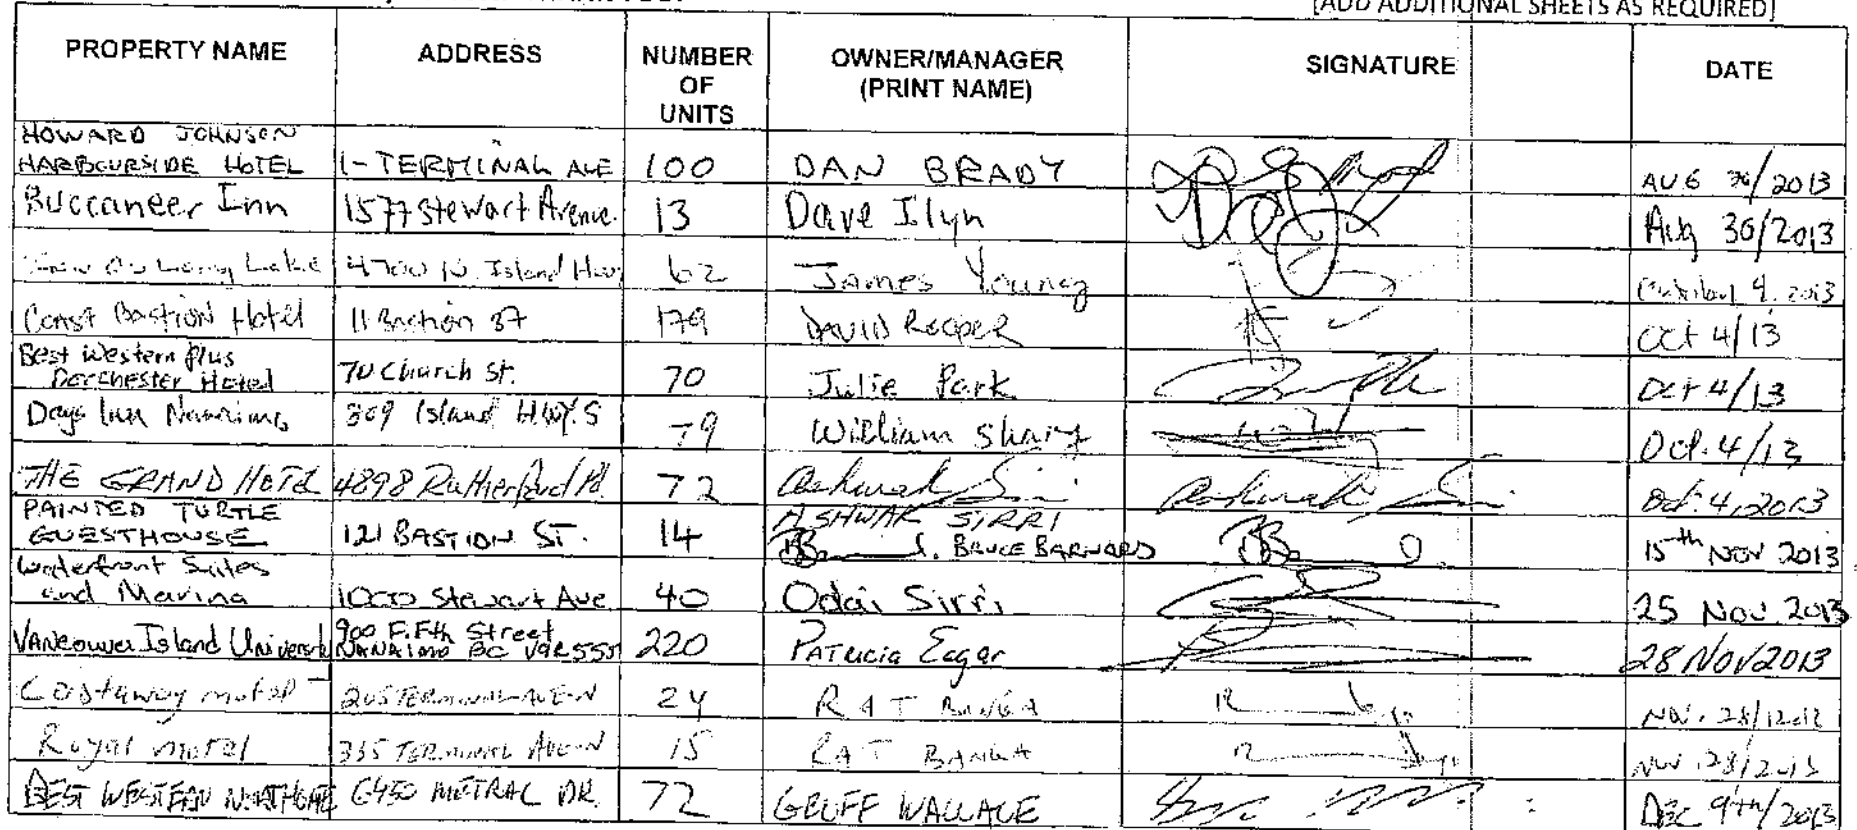 [ADD ADDITIONAL SHEETS AS REQUIRED]
PROPERTY NAME ADDRESS NUMBER OF UNITS OWNER/MANAGER (PRINT NAME) SIGNATURE DATE
HOWARD JOHNSON
HARBOURSIDE HOTEL 1-TERMINAL AVE 100 DAN BRADY AUG /2013
Buccaneer Inn 1577 Stewart Avenue. 13 Dave Ilyn Aug 30/2013
Long Lake 4700 N. Island Hwy 62 James Young October 4. 2013
Coast Bastion Hotel 11 Bastion ST 179 DAVID ROOPER Oct 4/13
Best Western Plus
Dorchester Hotel 70 Church St. 70 Julie Park Oct 4/13
Days Inn Nanaimo 809 Island HWY. S 79 William Oct. 4/13
THE GRAND HOTEL 4898 Rutherford Rd. 72 Ashwak Sirri Oct. 4, 2013
ASHWAK SIRRI
PAINTED TURTLE
GUESTHOUSE 121 BASTION ST. 14 BRUCE BARNARD 15th NOV 2013
Waterfront Suites
and Marina 1000 Stewart Ave 40 Odai Sirri 25 Nov. 2013
Vancouver Island University 900 Fifth Street
NANAIMO BC V9R5S5 220 Patricia Eagar 28 NOV 2013
Castaway motel 205 TERMINAL AVE-N 24 RAT BANGA NOV. 28/
Royal motel 335 TERMINAL AVE-N 15 RAT BANGA NOV. 28/2013
BEST WESTERN NORTHGATE 6450 METRAL DR. 72 GEOFF WALLACE DEC 9th/2013